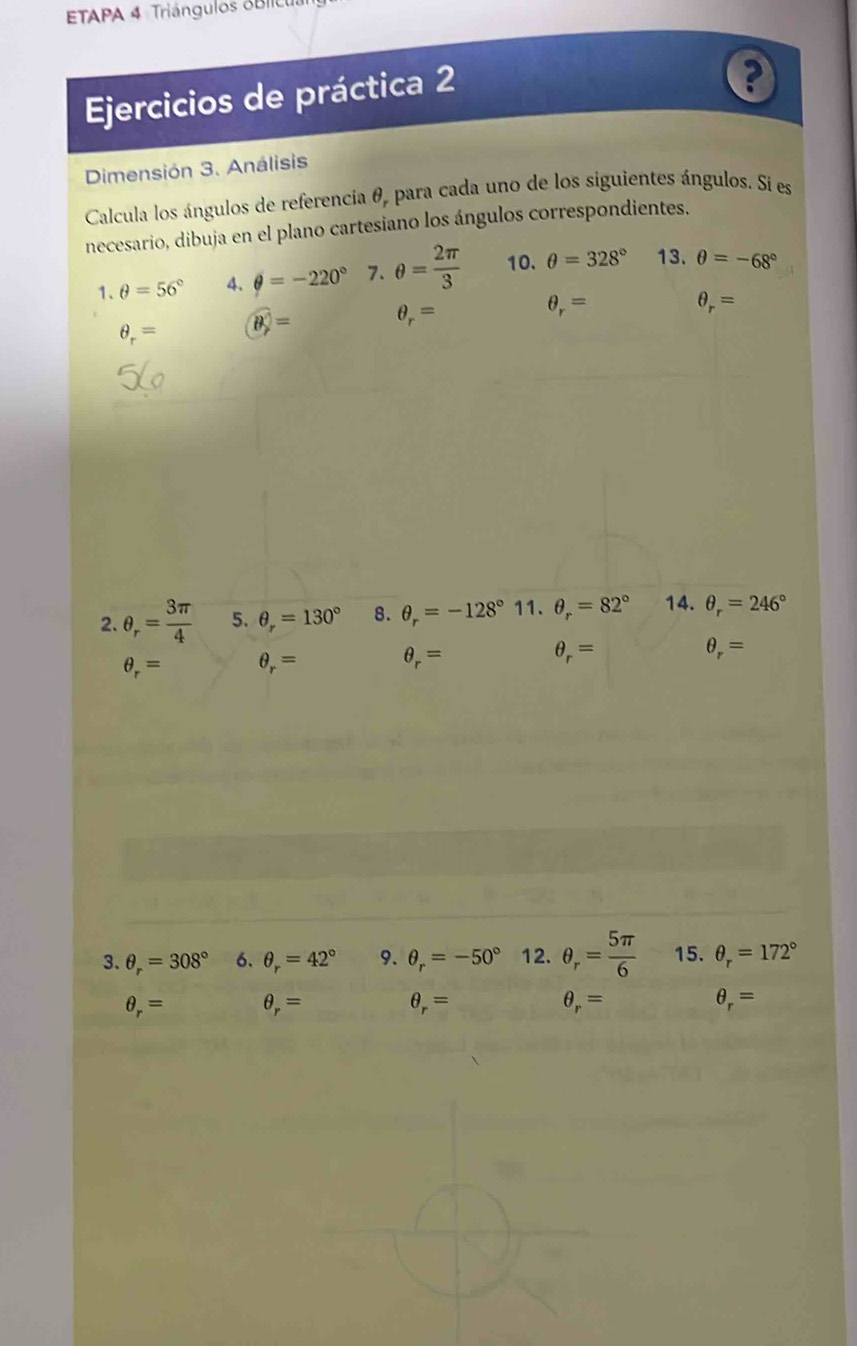 ETAPA 4 Triángulos
Ejercicios de práctica 2
?
Dimensión 3. Análisis
Calcula los ángulos de referencia θᵣ para cada uno de los siguientes ángulos. Si es
necesario, dibuja en el plano cartesiano los ángulos correspondientes.
1. θ = 56° 4. θ = −220° 7. θ = 2π/3 10. θ = 328° 13. θ = −68°
θᵣ = θᵣ = θᵣ = θᵣ = θᵣ =
56
2. θᵣ = 3π/4 5. θᵣ = 130° 8. θᵣ = −128° 11. θᵣ = 82° 14. θᵣ = 246°
θᵣ = θᵣ = θᵣ = θᵣ = θᵣ =
3. θᵣ = 308° 6. θᵣ = 42° 9. θᵣ = −50° 12. θᵣ = 5π/6 15. θᵣ = 172°
θᵣ = θᵣ = θᵣ = θᵣ = θᵣ =